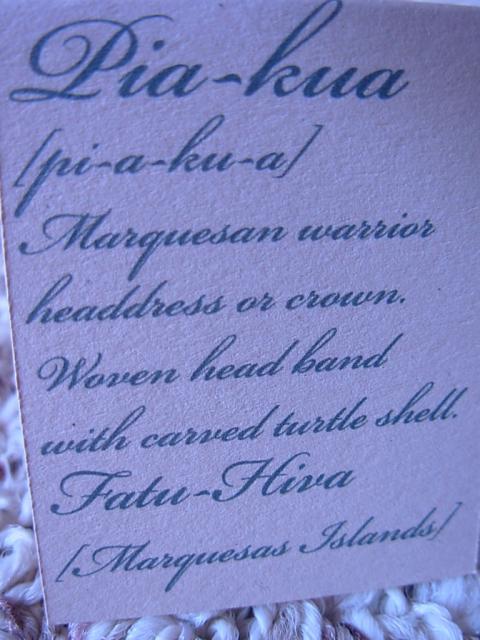 Pia-kua
[pi-a-ku-a]
Marquesan warrior
headdress or crown.
Woven head band
with carved turtle shell.
Fatu-Hiva
[Marquesas Islands]